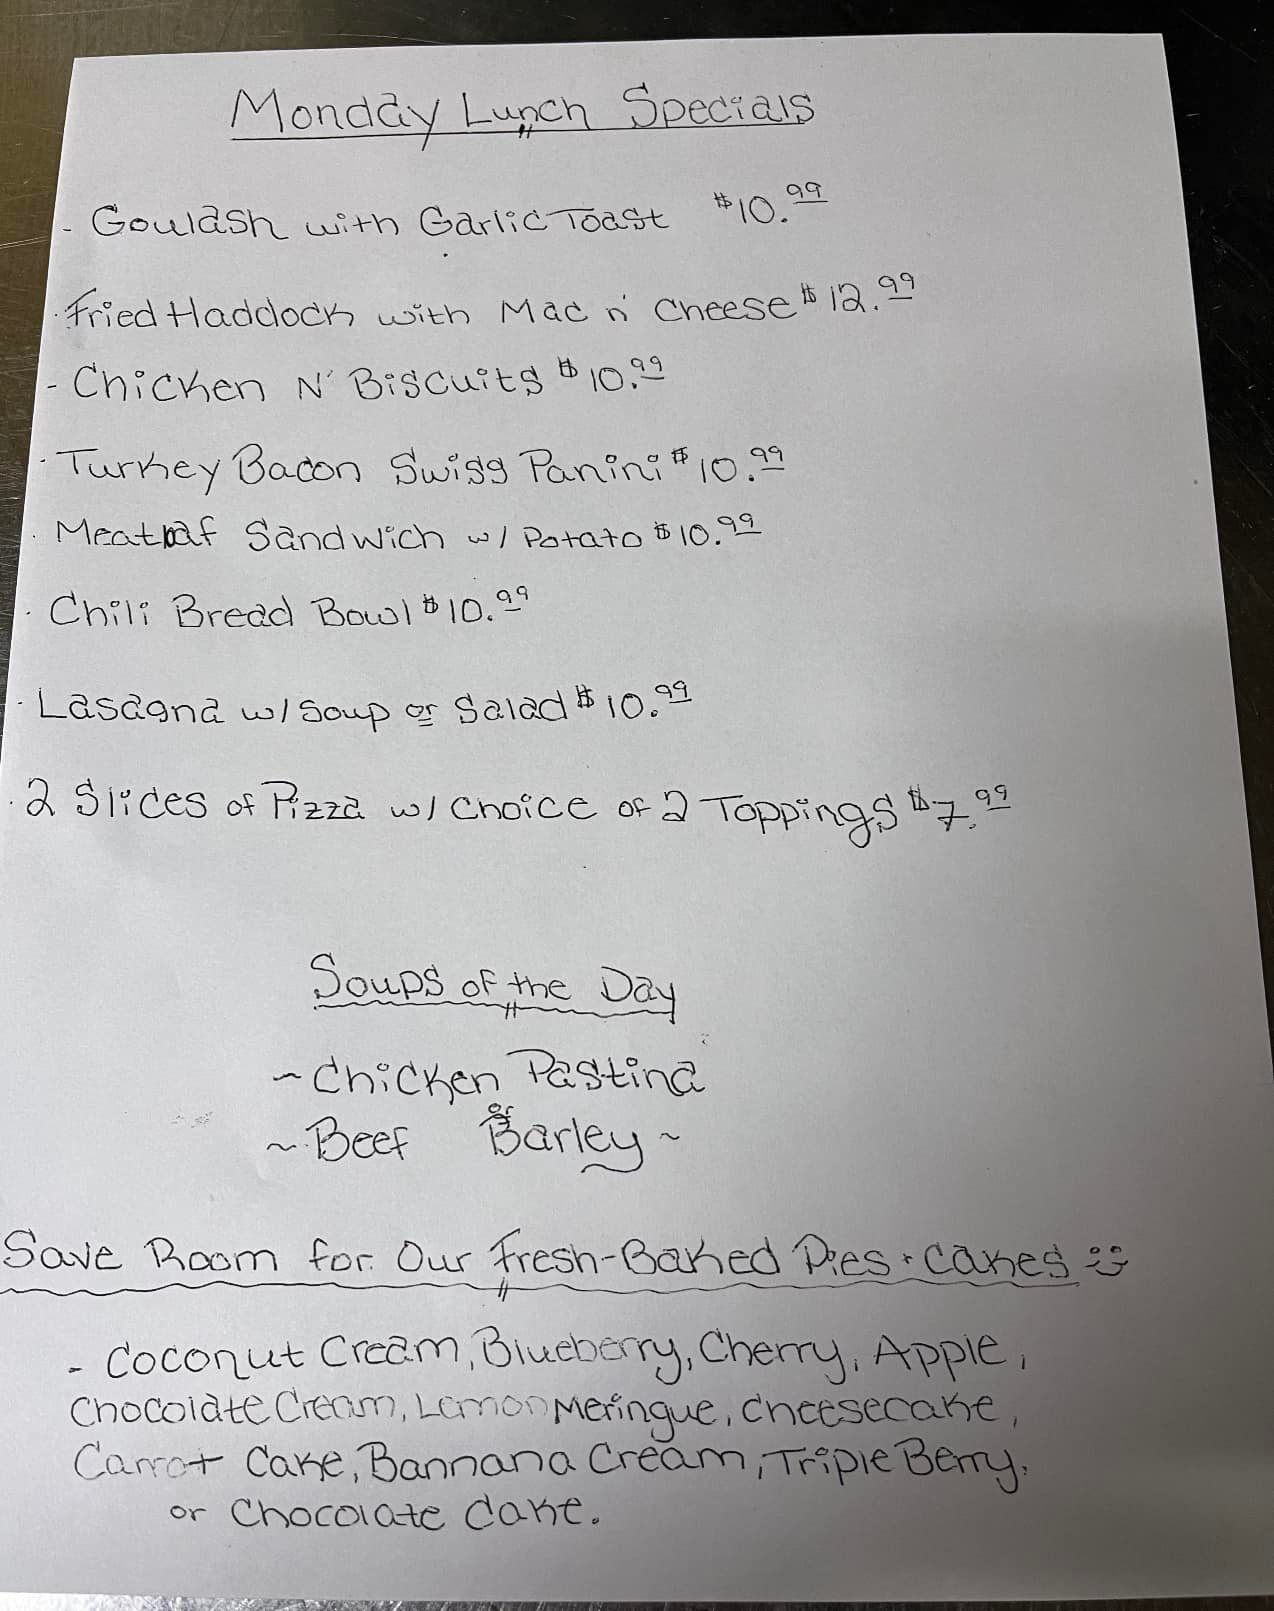 Monday Lunch Specials
- Goulash with Garlic Toast $10.99
· Fried Haddock with Mac n' Cheese $12.99
- Chicken N' Biscuits $10.99
· Turkey Bacon Swiss Panini $10.99
· Meatloaf Sandwich w/ Potato $10.99
· Chili Bread Bowl $10.99
· Lasagna w/ Soup or Salad $10.99
· 2 Slices of Pizza w/ Choice of 2 Toppings $7.99
Soups of the Day
~ Chicken Pastina
or
~ Beef Barley ~
Save Room for Our Fresh-Baked Pies + Cakes
- Coconut Cream, Blueberry, Cherry, Apple,
Chocolate Cream, Lemon Meringue, Cheesecake,
Carrot Cake, Bannana Cream, Triple Berry,
or Chocolate Cake.